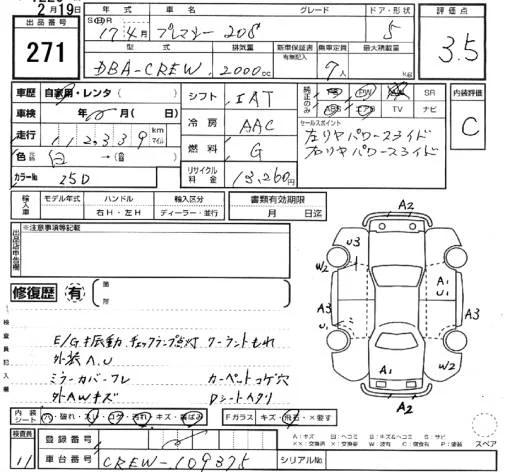 2月19日
出品番号
271
年式
車名
グレード
ドア・形状
評価点
SⒽR
17年4月
プレマシー 20S
5
3.5
型式
排気量
新車保証書
有無記入
乗車定員
最大積載量
DBA-CREW
2000cc
7人
kg
車歴 自家用・レンタ( )
シフト
IAT
純正のみ
PS PW AW SR
AB エアB TV ナビ
内装評価
C
車検 年 月( 日)
冷房
AAC
セールスポイント
左リヤパワースライド
右リヤパワースライド
走行 112,339 km マイル
燃料
G
色 元色 白 →(替色 )
カラーNo 25D
リサイクル料金
13,260円
輸入車
モデル年式
ハンドル
右H・左H
輸入区分
ディーラー・並行
書類有効期限
月 日迄
※注意事項等記載
出品店申告欄
修復歴 有
箇所
検査員記入欄
E/G振動 チェックランプ点灯 クーラントもれ
外装A.U
ミラーカバーワレ カーペットコゲ穴
外AWキズ Dシートヘタリ
A2
U3
W2
A1
U1
A3
A3
U1
W2
A1
A2
内装シート 穴・破れ・スレ・コゲ・汚れ・キズ・黄ばみ
Fガラス キズ・飛石・×要す
A:キズ 凹:ヘコミ B:キズ&ヘコミ S:サビ
××:交換済 ×:交換要 W:波有 C:腐食有 P:塗装
スペア
検査員
11
登録番号
車台番号 CREW-109375
シリアルNo.